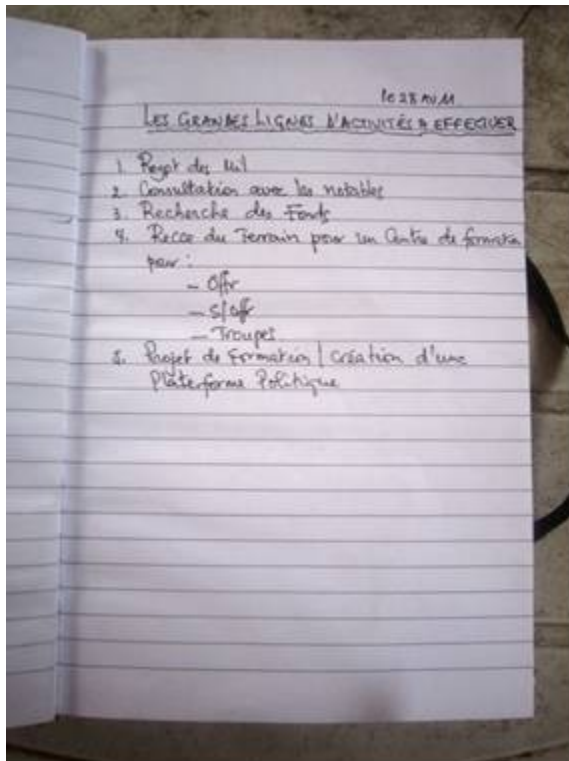 le 28 AV 11
LES GRANDES LIGNES D'ACTIVITÉS A EFFECTUER
1. des Mil
2. Consultation avec les notables
3. Recherche des Fonds
4. Recce du Terrain pour un Centre de formation
pour :
- Offr
- S/Off
- Troupes
5. Projet de Formation / Création d'une
Plateforme Politique